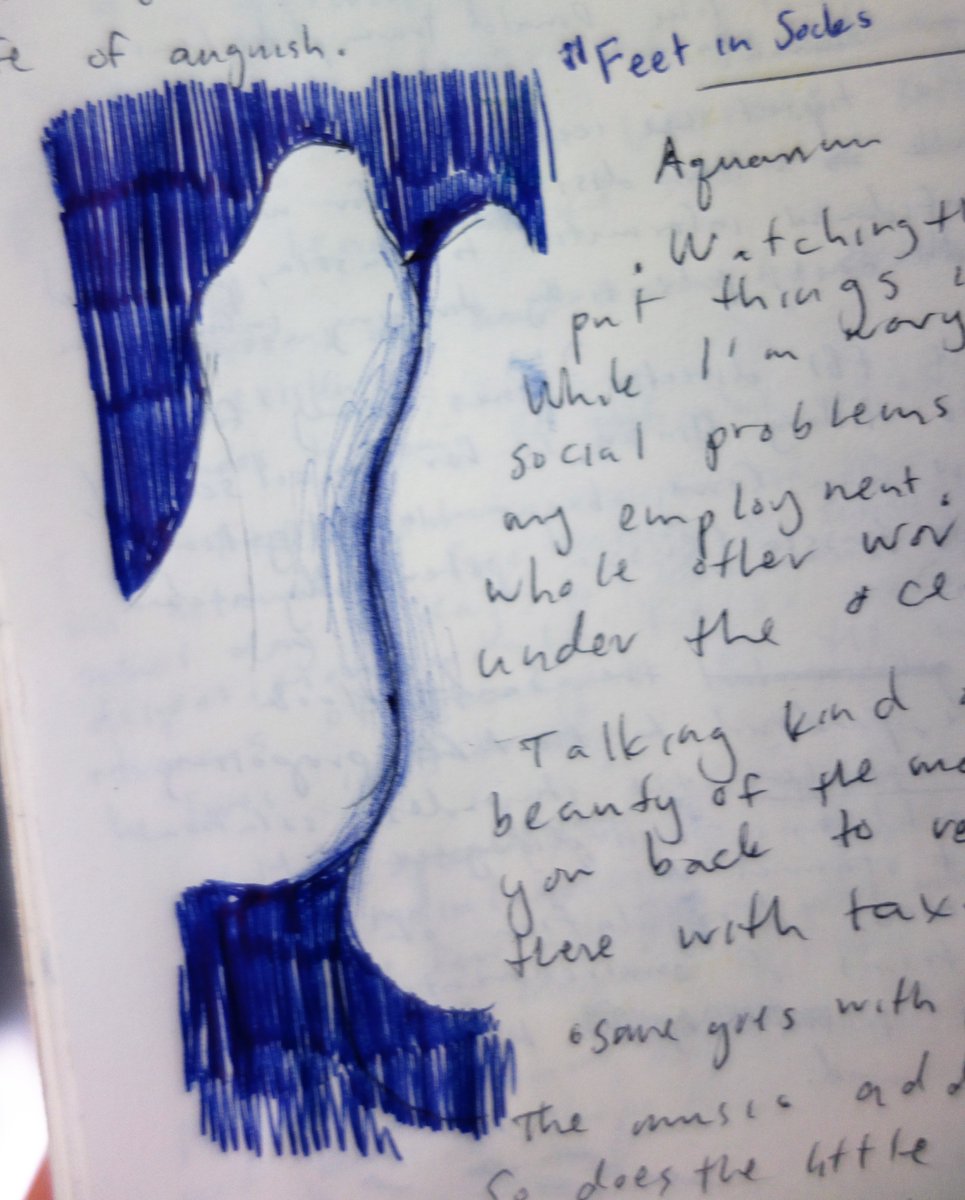 of anguish.
"Feet in Socks
Aquarium
. Watching th
put things i
While I'm
social problems
any employment.
whole other wor
under the oce
Talking kind
beauty of the
you back to re
there with tax
• same goes with
The music add
So does the little